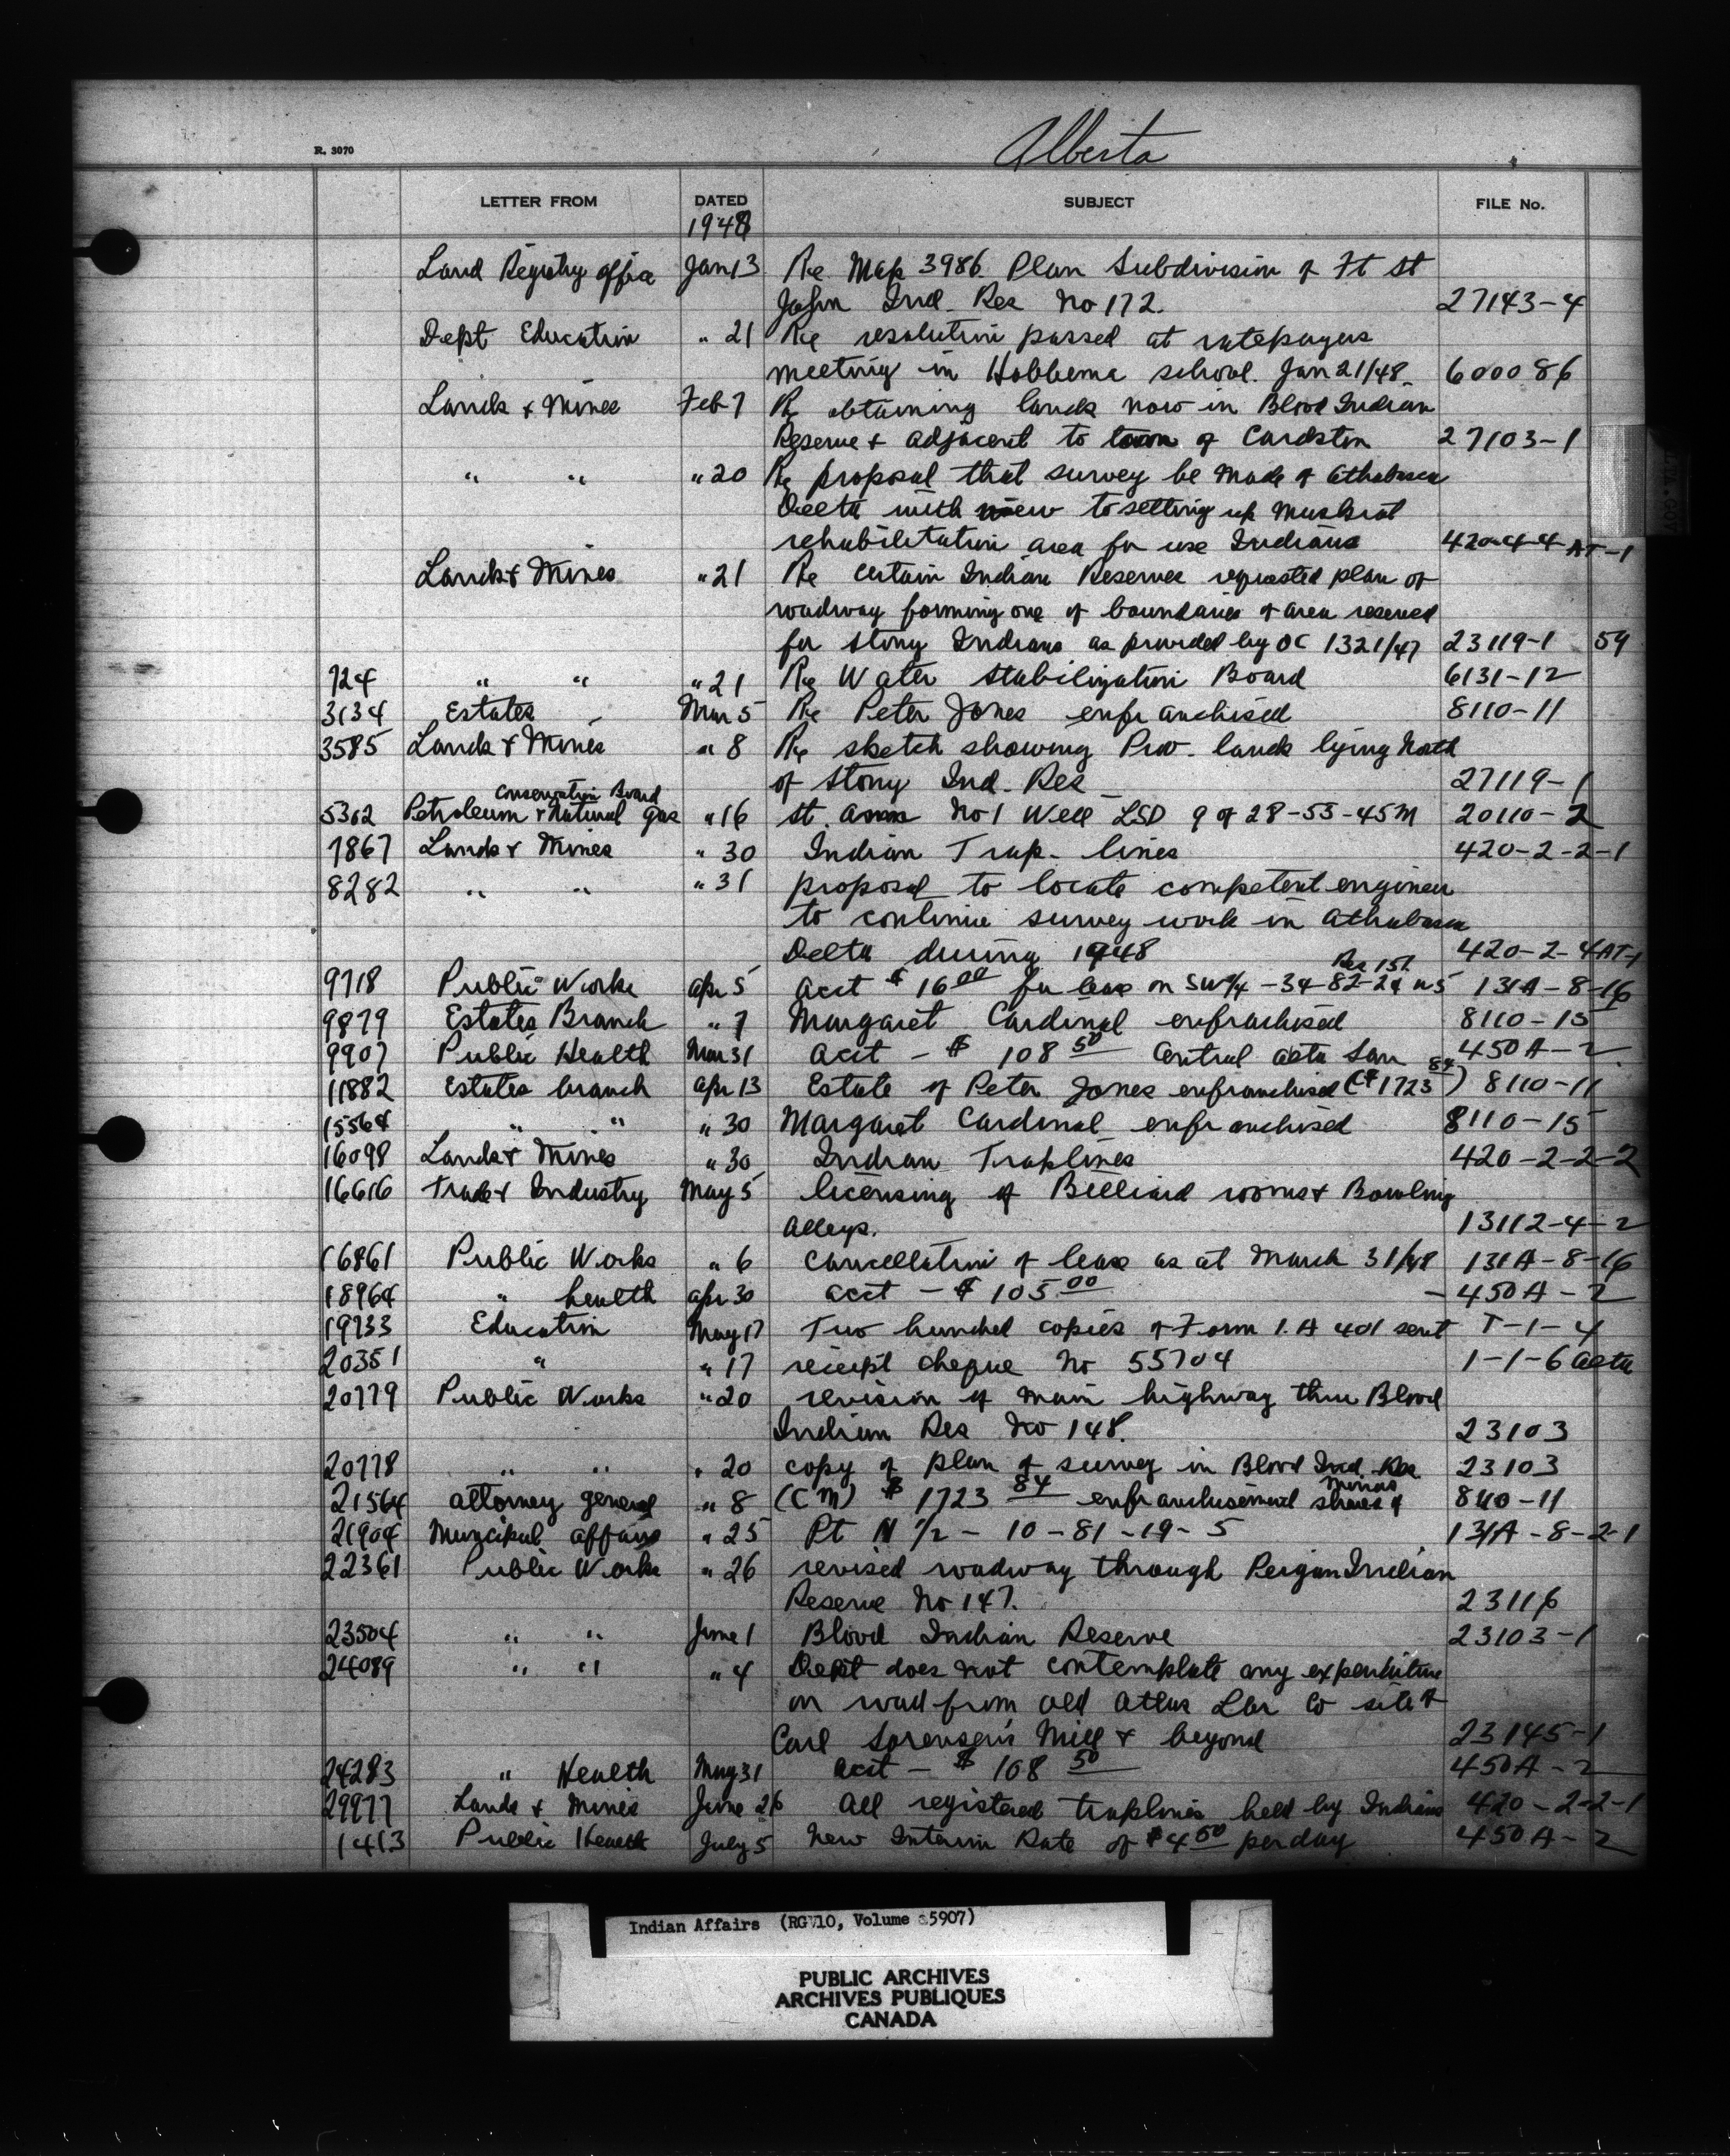 Alberta
R. 3070
LETTER FROM DATED SUBJECT FILE No.
1948
Land Registry Office Jan 13 Re Map 3986 Plan Subdivision of Ft St
John Ind. Res No 172. 27143-4
Dept Education " 21 Re resolution passed at ratepayers
meeting in Hobbema school. Jan 21/48. 600086
Lands & Mines Feb 7 Re obtaining lands now in Blood Indian
Reserve & adjacent to town of Cardston 27103-1
" " " 20 Re proposal that survey be made of Athabasca
Delta with view to setting up Muskrat
rehabilitation area for use Indians 420-4-4-AT-1
Lands & Mines " 21 Re certain Indian Reserves requested plan of
roadway forming one of boundaries of area reserved
for Stony Indians as provided by OC 1321/47 23119-1 59
724 " " " 21 Re Water Stabilization Board 6131-12
3134 Estates Mar 5 Re Peter Jones enfranchised 8110-11
3585 Lands & Mines " 8 Re sketch showing Prov. lands lying North
of Stony Ind. Res 27119-1
Conservation Board
5302 Petroleum & Natural Gas " 16 St. Anns No 1 Well LSD 9 of 28-55-45M 20110-2
7867 Lands & Mines " 30 Indian Trap-lines 420-2-2-1
8282 " " " 31 proposal to locate competent engineer
to continue survey work in Athabasca
Delta during 1948 420-2-4AT-1
Res 152
9718 Public Works Apr 5 acct $16 00 for lease on SW¼-34-82-24 W5 131A-8-16
9879 Estates Branch " 7 Margaret Cardinal enfranchised 8110-15
9907 Public Health Mar 31 acct - $ 108 50 Central Alta San 450A-2
11882 Estates branch Apr 13 Estate of Peter Jones enfranchised (C$1723 84) 8110-11
15564 " " " 30 Margaret Cardinal enfranchised 8110-15
16098 Lands & Mines " 30 Indian Traplines 420-2-2-2
16616 Trade & Industry May 5 licensing of Billiard rooms & Bowling
Alleys. 13112-4-2
16861 Public Works " 6 Cancellation of lease as at March 31/48 131A-8-16
18964 " health Apr 30 acct - $ 105 00 - 450A-2
19733 Education May 17 Two hundred copies of Form I.A 401 sent T-1-4
20351 " " 17 receipt cheque No 55704 1-1-6 Alta
20779 Public Works " 20 revision of main highway thru Blood
Indian Res No 148. 23103
20778 " " " 20 copy of plan of survey in Blood Ind. Res 23103
21564 Attorney general " 8 (CM) $ 1723 84 enfranchisement shares of Minors 8110-11
21904 Muncipal affairs " 25 Pt N ½ - 10-81-19-5 131A-8-2-1
22361 Public Works " 26 revised roadway through Peigan Indian
Reserve No 147. 23116
23504 " " June 1 Blood Indian Reserve 23103-1
24089 " " " 4 Dept does not contemplate any expenditure
on road from old Atlas Lbr Co site &
Carl Sorensen's Mill & beyond 23145-1
24283 " Health May 31 acct - $ 108 50 450A-2
29977 Lands & Mines June 26 All registered traplines held by Indians 420-2-2-1
1413 Public Health July 5 New Interim Rate of $4 50 per day 450A-2
Indian Affairs (RG 10, Volume 5907)
PUBLIC ARCHIVES
ARCHIVES PUBLIQUES
CANADA